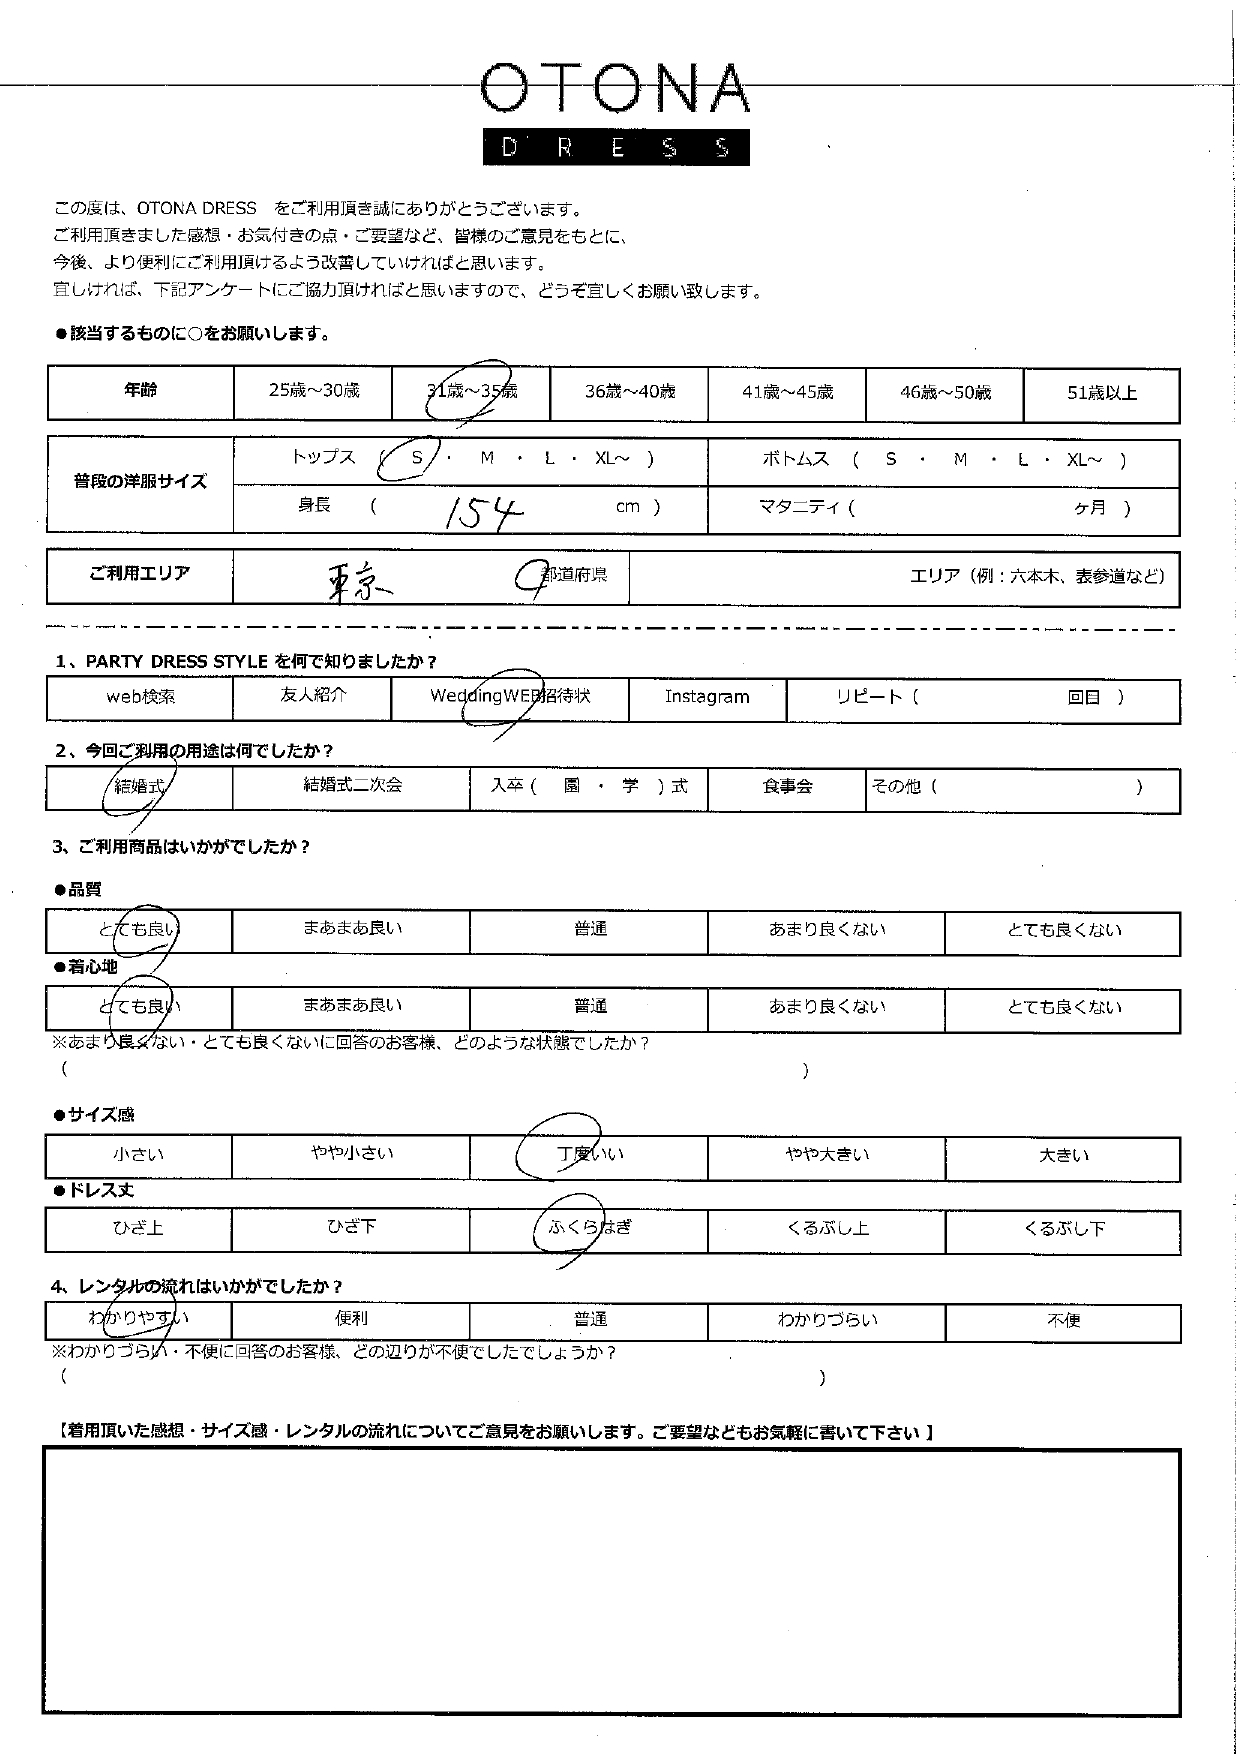 OTONA
DRESS
この度は、OTONA DRESS をご利用頂き誠にありがとうございます。
ご利用頂きました感想・お気付きの点・ご要望など、皆様のご意見をもとに、
今後、より便利にご利用頂けるよう改善していければと思います。
宜しければ、下記アンケートにご協力頂ければと思いますので、どうぞ宜しくお願い致します。
●該当するものに○をお願いします。
年齢 25歳～30歳 31歳～35歳 36歳～40歳 41歳～45歳 46歳～50歳 51歳以上
普段の洋服サイズ
トップス ( S ・ M ・ L ・ XL～ ) ボトムス ( S ・ M ・ L ・ XL～ )
身長 ( 154 cm ) マタニティ ( ヶ月 )
ご利用エリア 東京 都道府県 エリア（例：六本木、表参道など）
1、PARTY DRESS STYLE を何で知りましたか？
web検索 友人紹介 WeddingWEB招待状 Instagram リピート ( 回目 )
2、今回ご利用の用途は何でしたか？
結婚式 結婚式二次会 入卒 ( 園 ・ 学 ) 式 食事会 その他 ( )
3、ご利用商品はいかがでしたか？
●品質
とても良い まあまあ良い 普通 あまり良くない とても良くない
●着心地
とても良い まあまあ良い 普通 あまり良くない とても良くない
※あまり良くない・とても良くないに回答のお客様、どのような状態でしたか？
( )
●サイズ感
小さい やや小さい 丁度いい やや大きい 大きい
●ドレス丈
ひざ上 ひざ下 ふくらはぎ くるぶし上 くるぶし下
4、レンタルの流れはいかがでしたか？
わかりやすい 便利 普通 わかりづらい 不便
※わかりづらい・不便に回答のお客様、どの辺りが不便でしたでしょうか？
( )
【着用頂いた感想・サイズ感・レンタルの流れについてご意見をお願いします。ご要望などもお気軽に書いて下さい 】